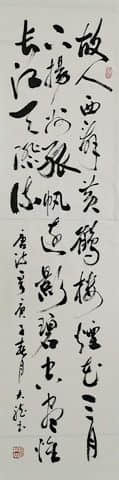 故人西辭黄鶴樓煙花三月
下揚州孤帆遠影碧空盡唯
長江天際流
唐詩 庚子春月